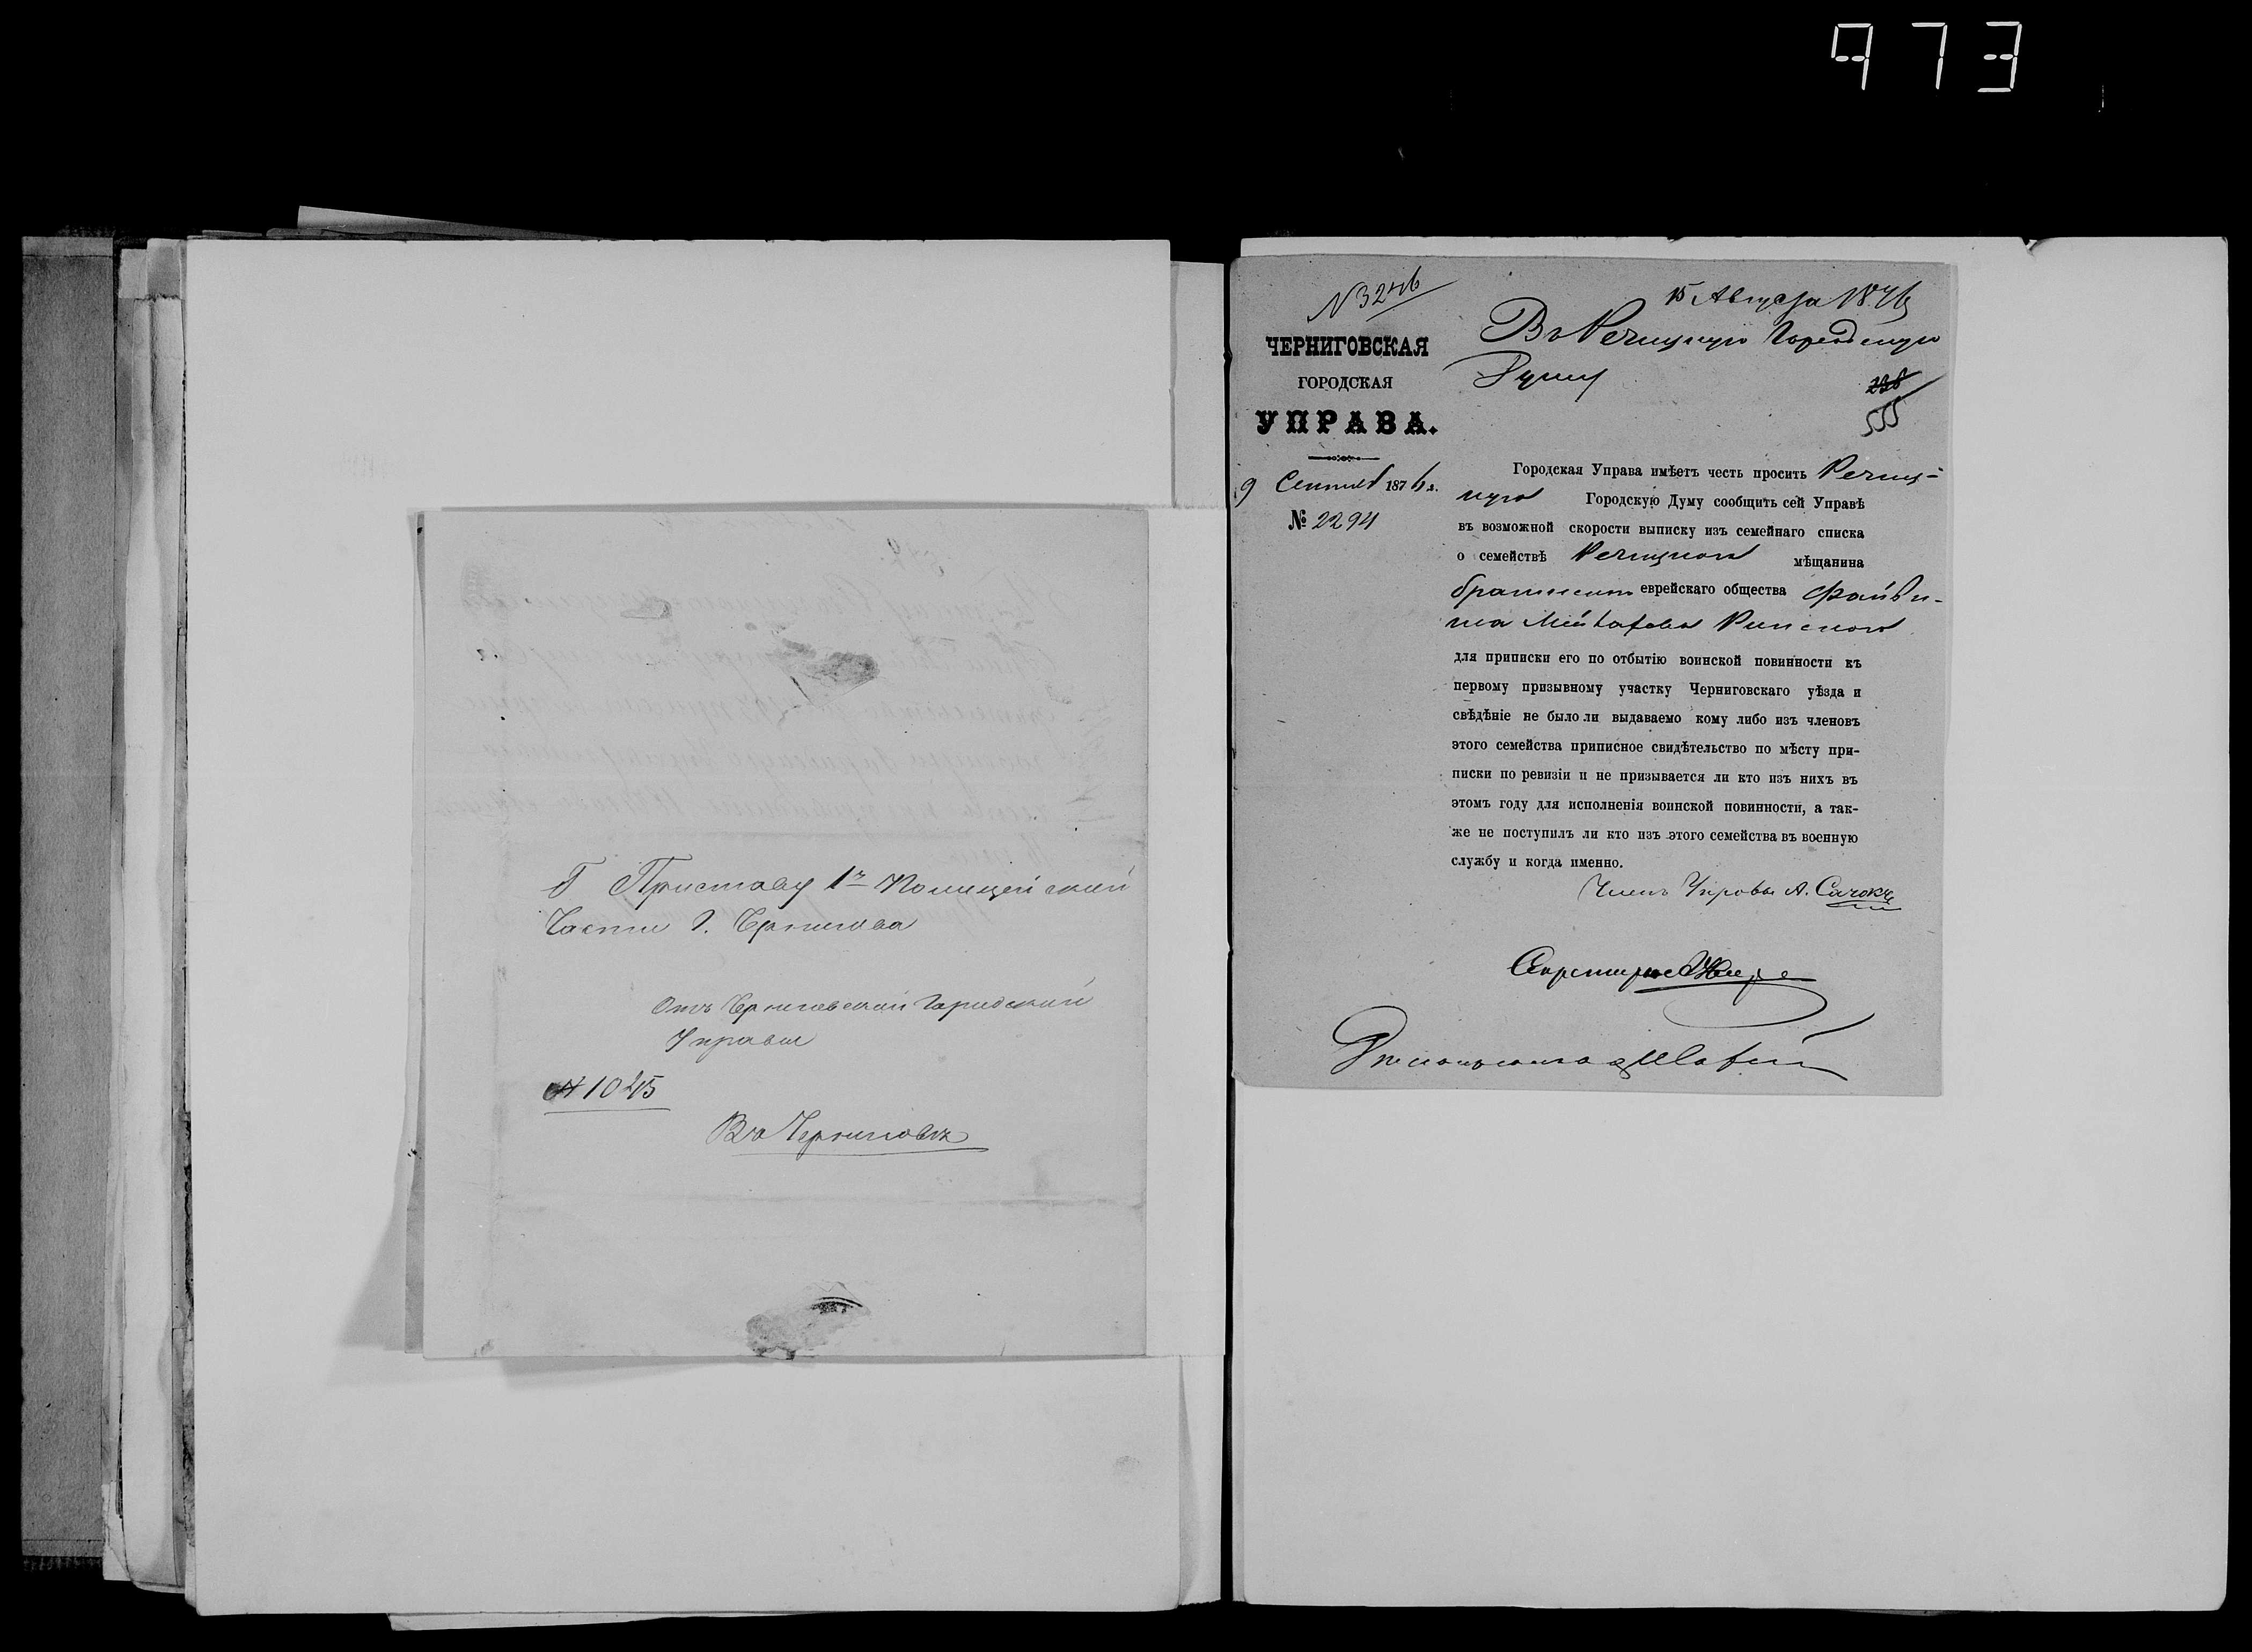 973
Г Приставу 1й Полицейской
Части г. Чернигова
Отъ Черниговской Городской
Управы
№ 1045
Въ Черниговѣ
№ 3246
15 Августа 1876
ЧЕРНИГОВСКАЯ
ГОРОДСКАЯ
УПРАВА.
9 Сентяб 1876 г.
№ 2294
Въ Речицкую Городскую
Думу
555
Городская Управа имѣетъ честь просить Речиц-
кую Городскую Думу сообщить сей Управѣ
въ возможной скорости выписку изъ семейнаго списка
о семействѣ Речицкого мѣщанина
еврейскаго общества Файви-
ша
для приписки его по отбытію воинской повинности къ
первому призывному участку Черниговскаго уѣзда и
свѣдѣніе не было ли выдаваемо кому либо изъ членовъ
этого семейства приписное свидѣтельство по мѣсту при-
писки по ревизіи и не призывается ли кто изъ нихъ въ
этомъ году для исполненія воинской повинности, а так-
же не поступилъ ли кто изъ этого семейства въ военную
службу и когда именно.
Членъ Управы А. Сачокъ
Секретарь